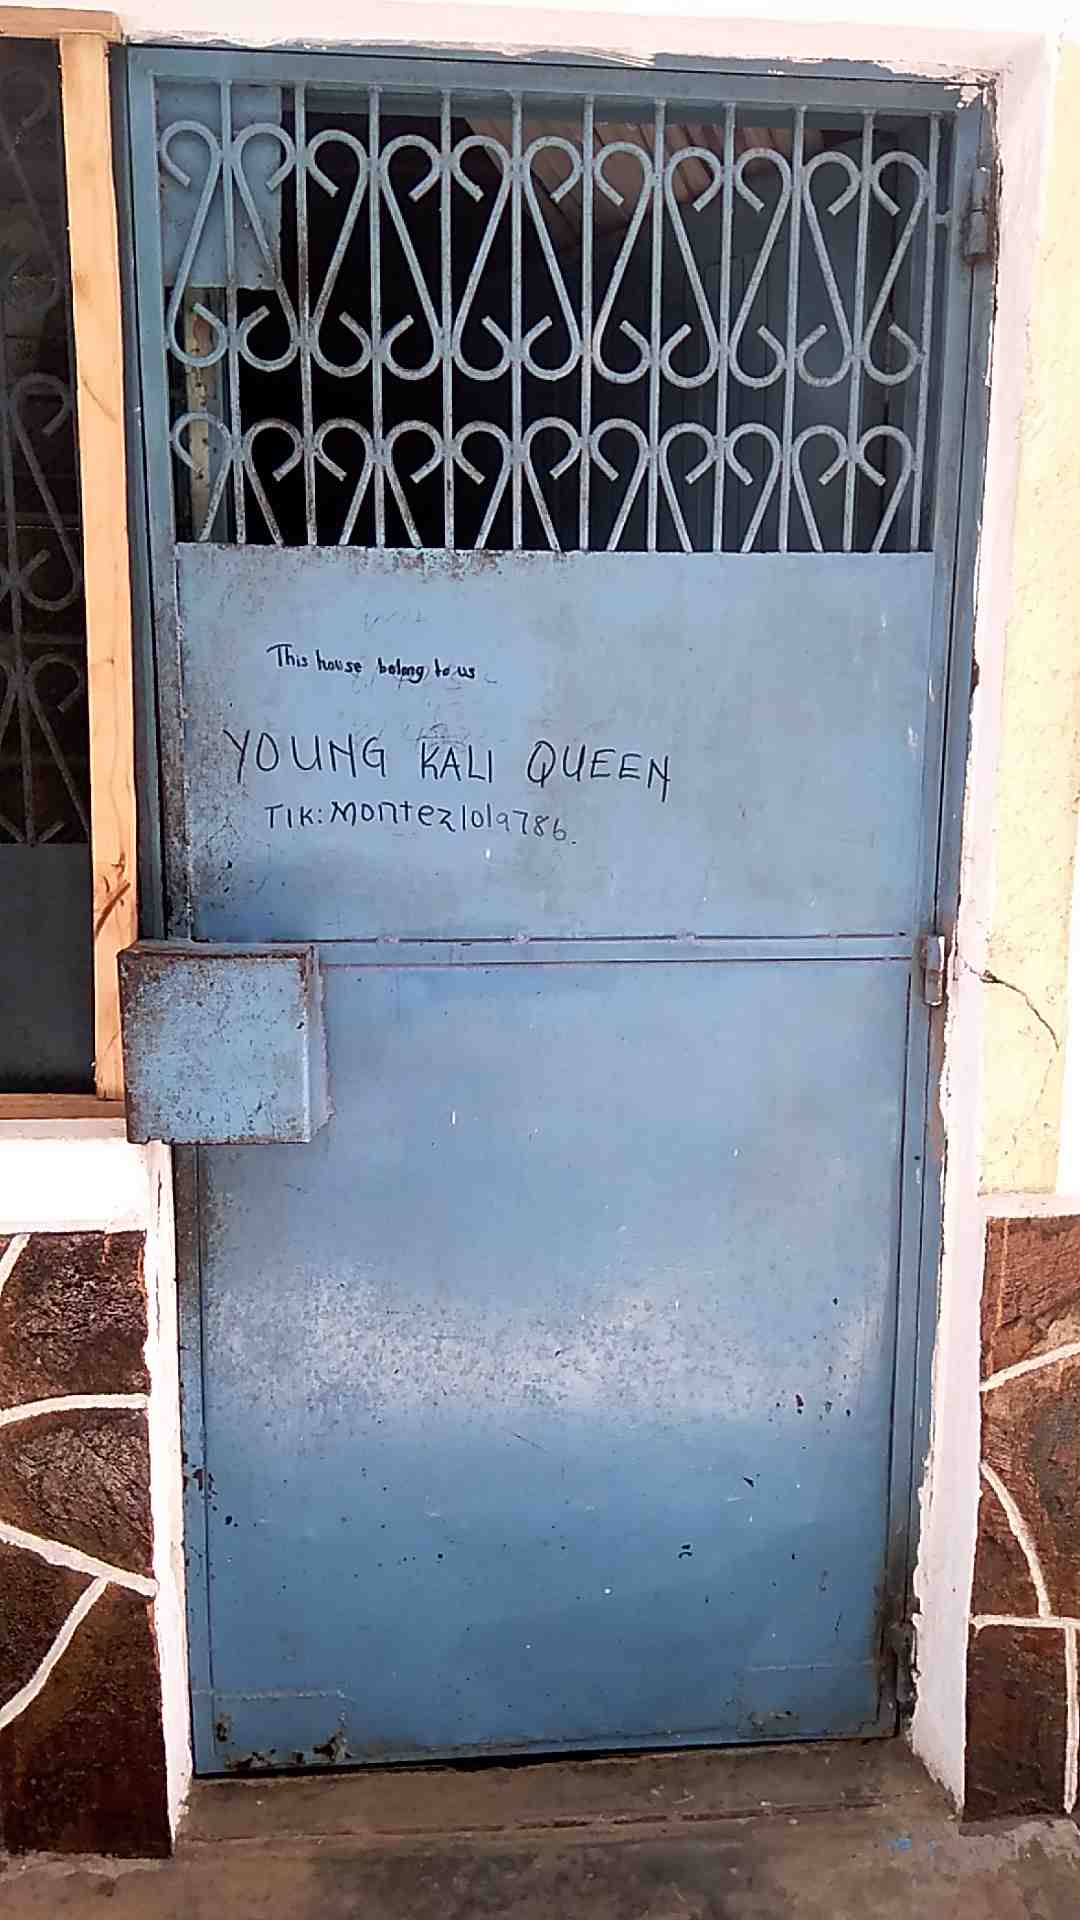 This house belong to us
YOUNG KALI QUEEN
TIK: Montez1019786